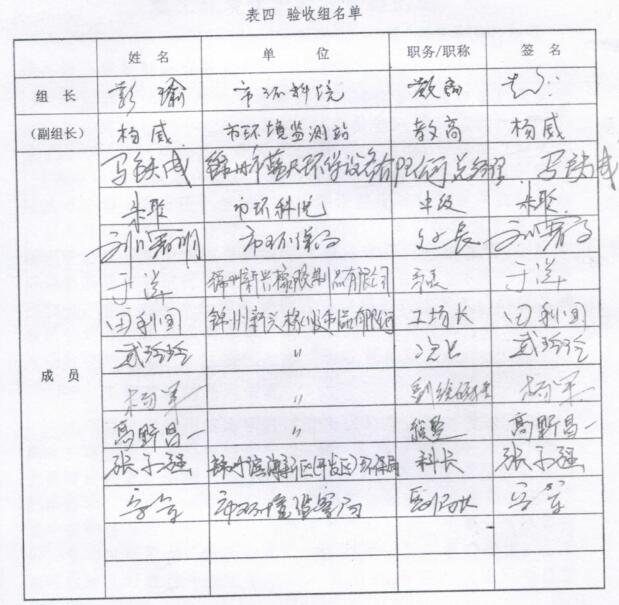 表四 验收组名单
姓名 单位 职务/职称 签名
组长 彭瑜 市环科院 教高
(副组长) 杨威 市环境监测站 教高 杨威
成员
马铁成 锦州市蓝天环保设备有限公司 总经理 马铁成
朱聪 市环科院 中级 朱聪
市环保局 处长
于洋 锦州新兴橡胶制品有限公司 于洋
田利国 锦州新兴橡胶制品有限公司 工场长 田利国
武玲玲 〃 次长 武玲玲
杨军 〃 副总经理 杨军
高野昌一 〃 高野昌一
张子强 锦州滨海新区(开发区)环保局 科长 张子强
市环境监察局 副局长